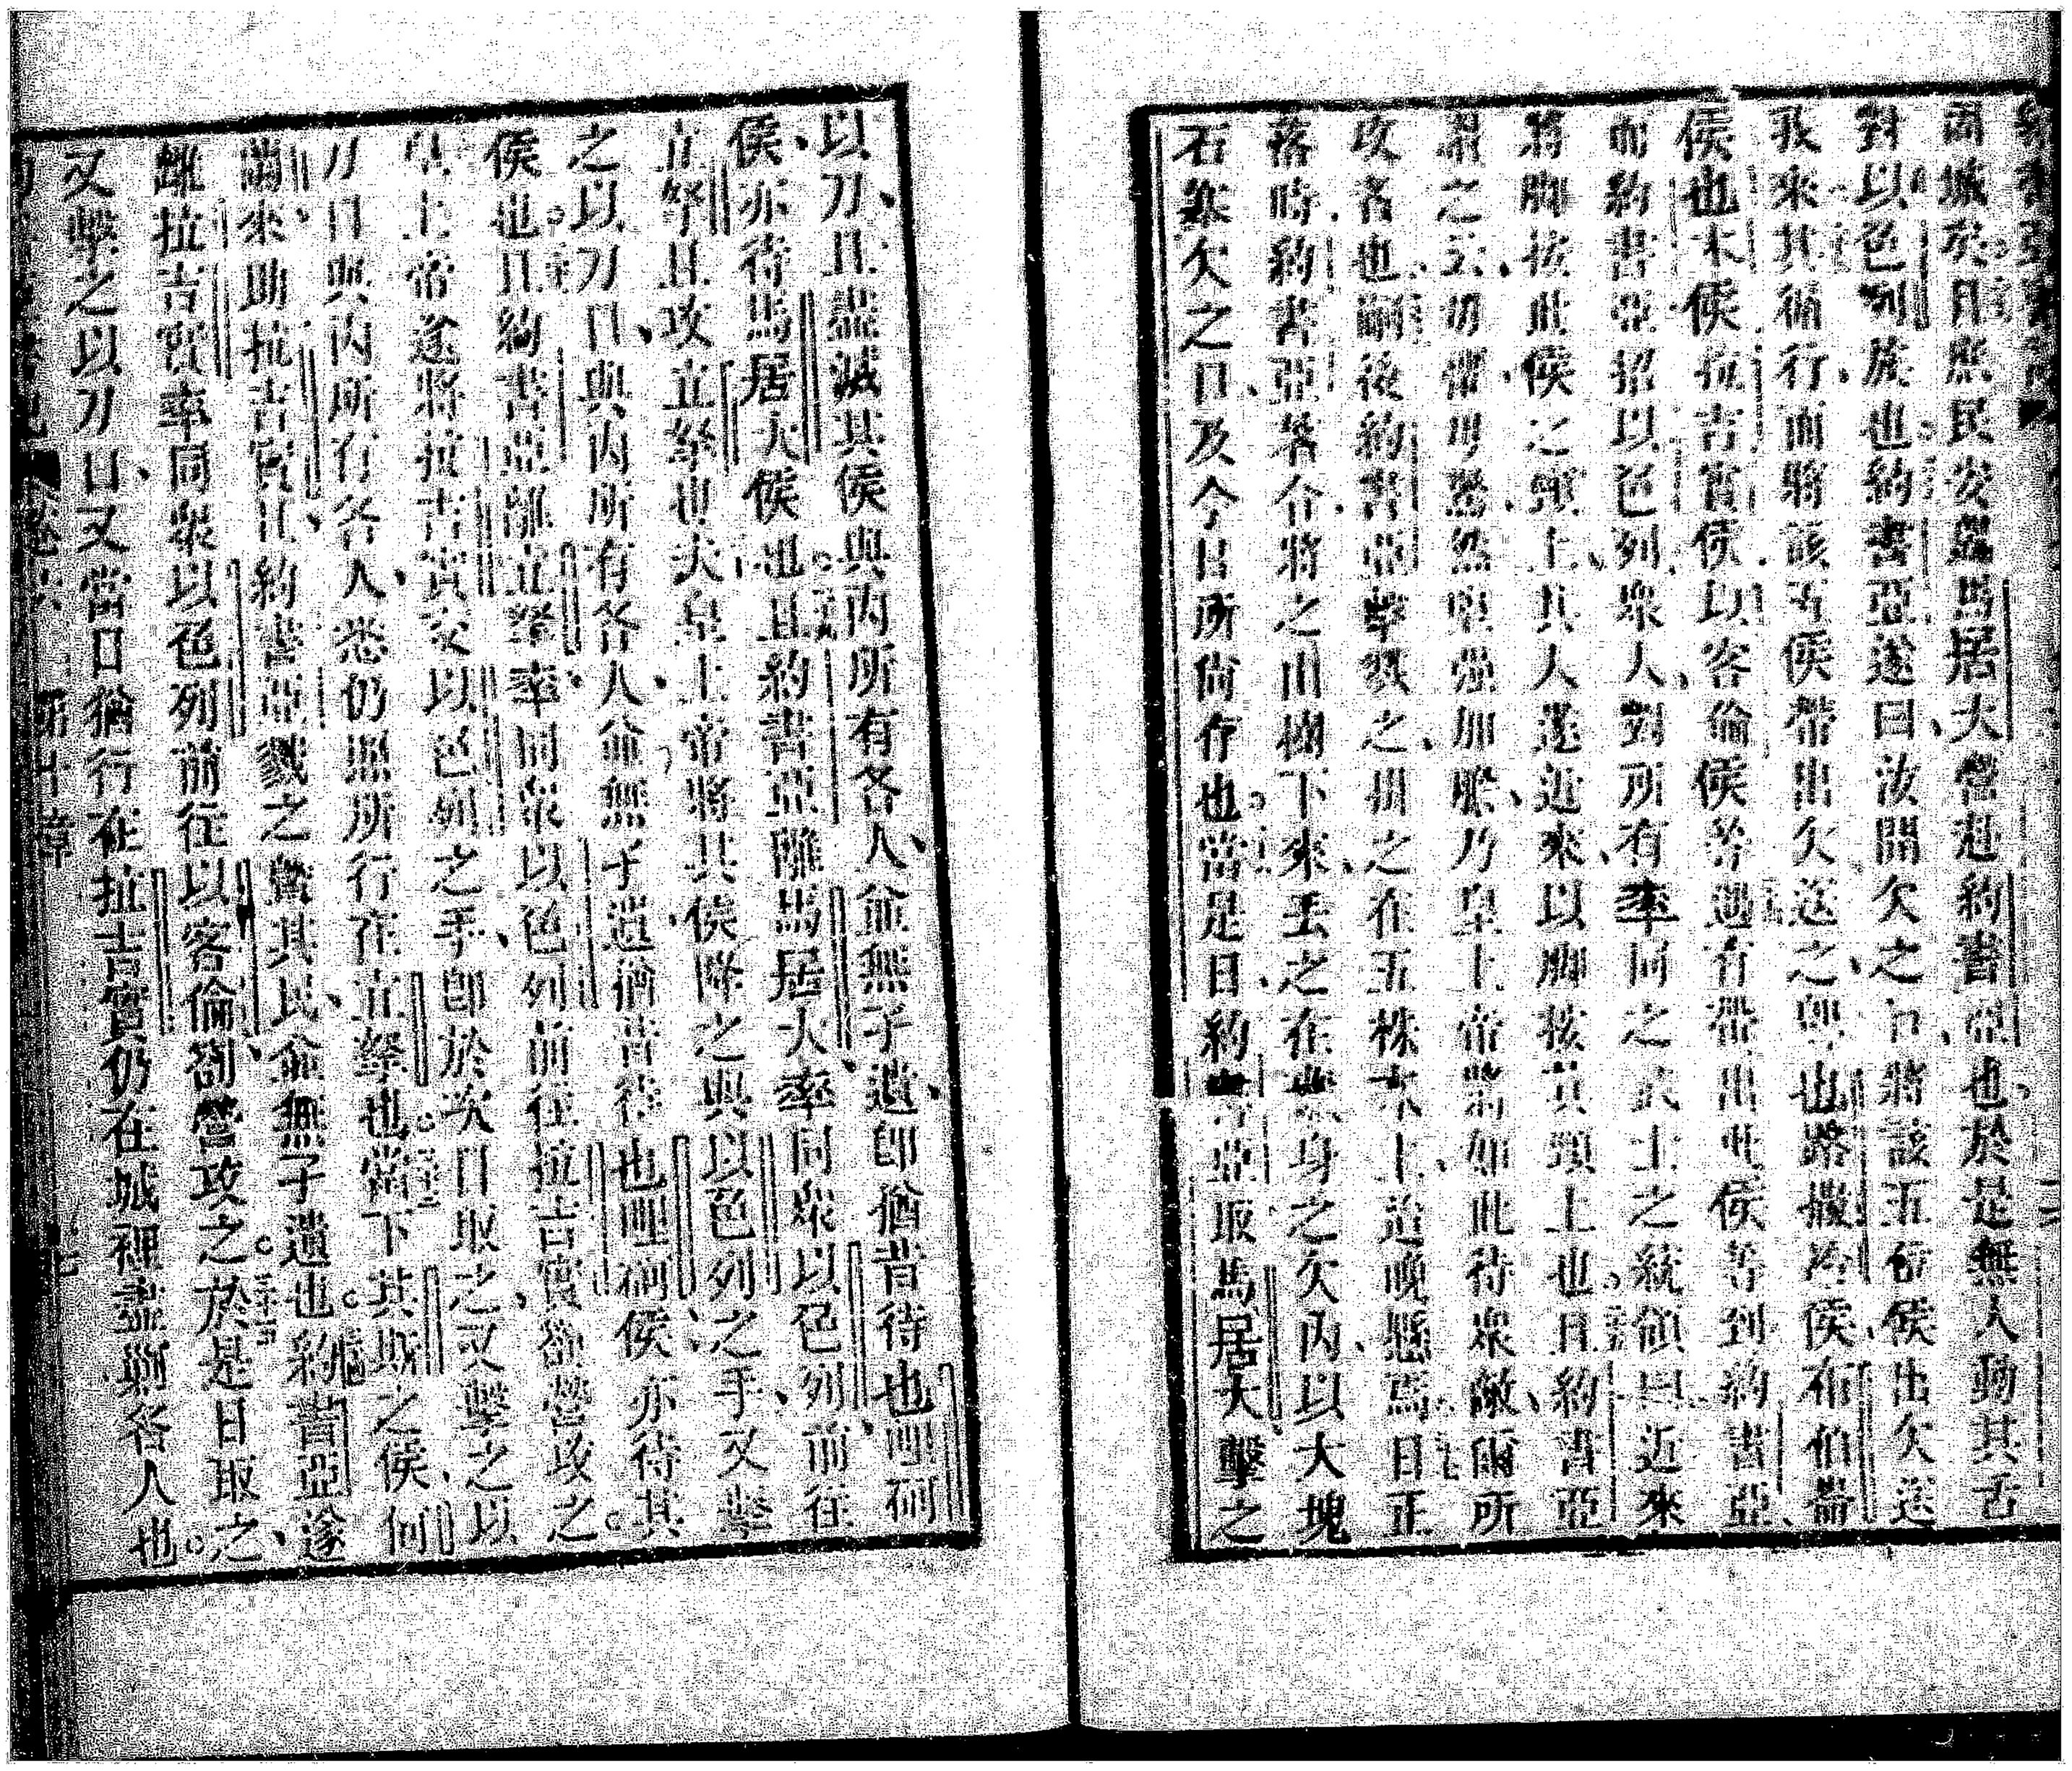 固城矣且庶民安然馬居大營赴約書亞也於是無人動其舌
對以色列族也約書亞遂曰汝開穴之口將該五侯出穴送
我來其循行而將該五侯帶出穴送之卽也路撒冷侯希伯崙
侯也木侯拉吉實侯以客倫侯等遇有帶出此侯等到約書亞
而約書亞招以色列眾人對所有率同之武士之統領曰近來
將脚按此侯之頸上其人遂近來以脚按其頸上也且約書亞
謂之云勿懼勿驚然堅強加膽乃皇上帝將如此待眾敵爾所
攻者也嗣後約書亞擊殺之掛之在五株木上迨晚懸焉日正
落時約書亞咨令將之由樹下來丟之在藏身之穴內以大塊
石塞穴之口及今日所尚存也當是日約書亞取馬居大擊之
以刀且盡滅其侯與內所有各人並無孑遺卽猶昔待也哩哥
侯亦待馬居大侯也且約書亞離馬居大率同眾以色列前往
立拏且攻立拏也夫皇上帝將其侯降之與以色列之手又擊
之以刀口與內所有各人並無孑遺猶昔待也哩哥侯亦待其
侯也且約書亞離立拏率同眾以色列前往拉吉實劄營攻之
皇上帝遂將拉吉實交以色列之手卽於次日取之又擊之以
刀口與內所有各人悉仍照所行在立拏也當下其斯之侯何
蘭來助拉吉實且約書亞戮之斃其民並無孑遺也約書亞遂
離拉吉實率同眾以色列前往以客倫劄營攻之於是日取之
又擊之以刀口又當日猶行在拉吉實仍在城裡盡剿各人也